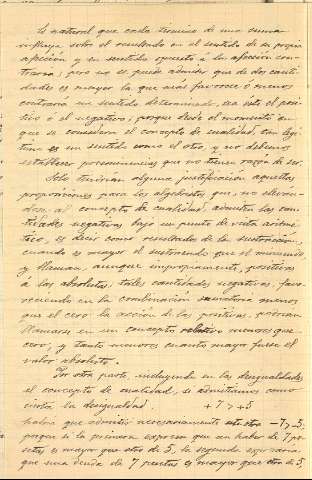 Es natural que cada término de una suma
influya sobre el resultado en el sentido de su propia
afección y en sentido opuesto á la afección con-
traria, pero no se puede admitir que de dos canti-
dades es mayor la que mas favorece o menos
contraría un sentido determinado, sea éste el posi-
tivo o el negativo, porque desde el momento en
que se considera el concepto de cualidad, tan legí-
timo es un sentido como el otro, y no debemos
establecer preeminencias que no tienen razón de ser.
Solo tendrían alguna justificación aquellas
proposiciones para los algebristas que, no
al concepto de cualidad, admiten las can-
tidades negativas bajo un punto de vista aritmé-
tico, es decir como resultado de la sustracción,
cuando es mayor el sustraendo que el minuendo
y llaman, aunque impropiamente, positivas
á las absolutas; tales cantidades negativas, favo-
reciendo en la combinación menos
que el cero la acción de las positivas, podrían
llamarse en un concepto relativo menores que
cero, y tanto menores cuanto mayor fuese el
valor absoluto.
Por otra parte, incluyendo en las desigualdades
el concepto de cualidad, si admitiamos como
cierta la desigualdad. +7 > +5
habría que admitir necesariamente esta otra -7 > -5
porque si la primera expresa que un haber de 7 pe-
setas es mayor que otro de 5, la segunda expresaría
que una deuda de 7 pesetas es mayor que otra de 5,